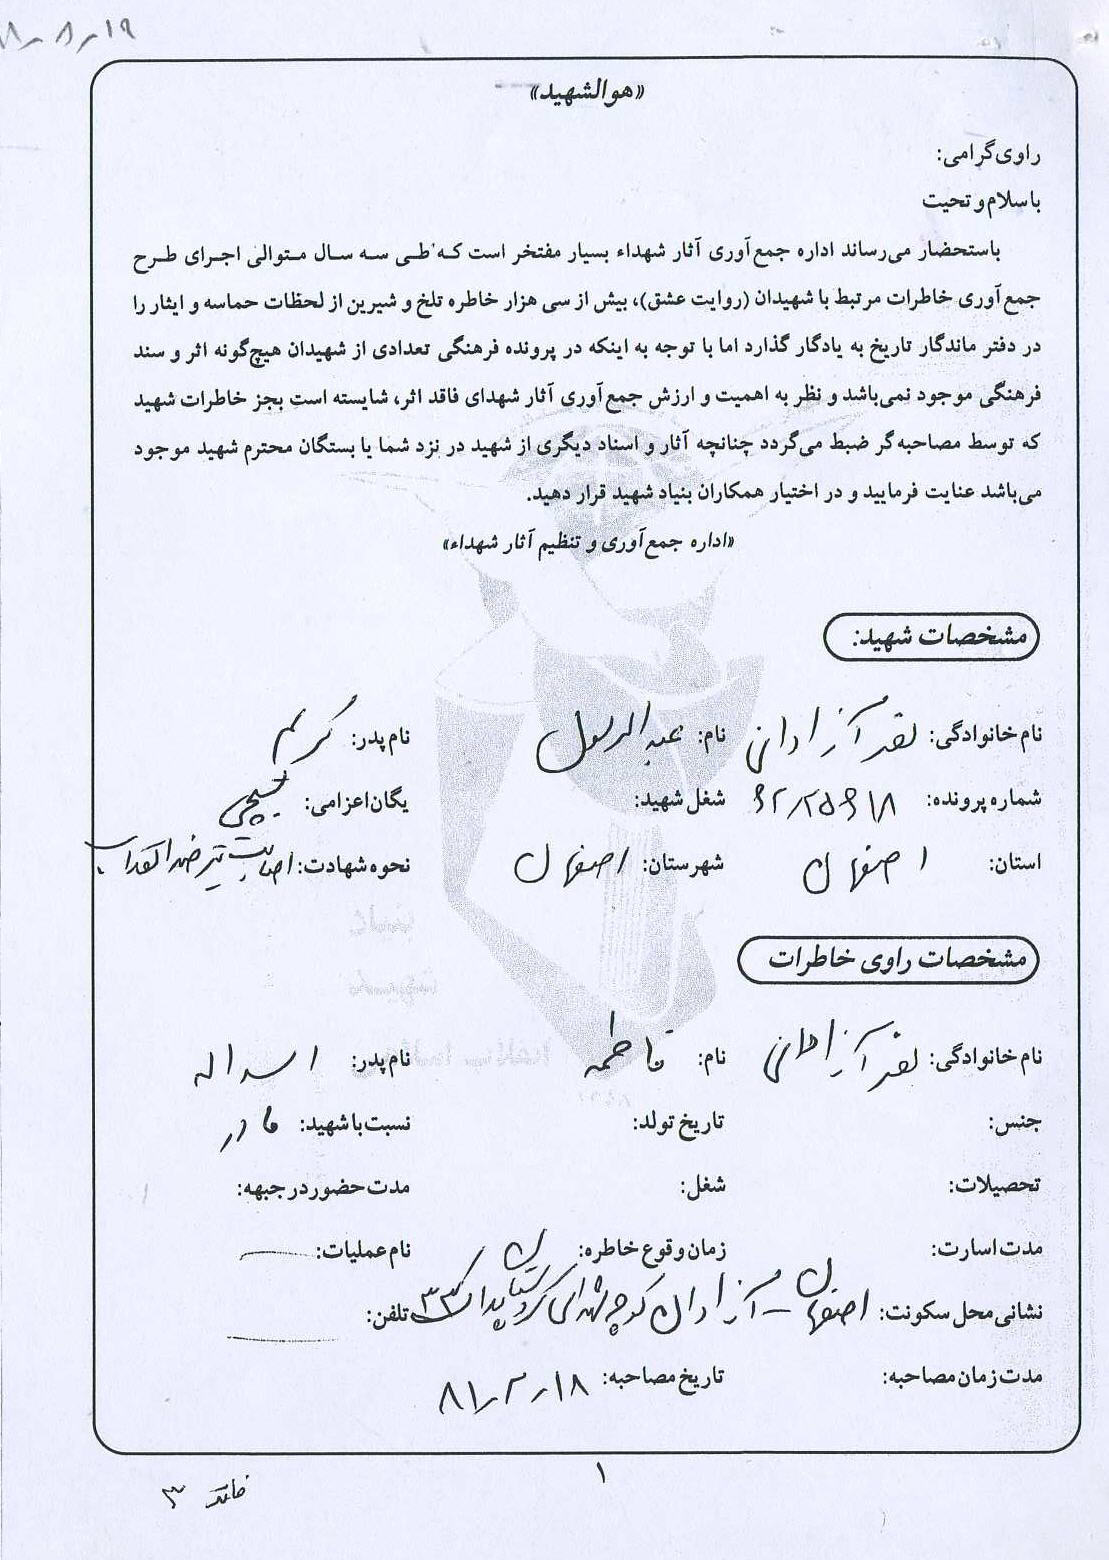 «هوالشهید»
راوی گرامی:
باسلام و تحیت
باستحضار می‌رساند اداره جمع‌آوری آثار شهداء بسیار مفتخر است که طی سه سال متوالی اجرای طرح
جمع‌آوری خاطرات مرتبط با شهیدان (روایت عشق)، بیش از سی هزار خاطره تلخ و شیرین از لحظات حماسه و ایثار را
در دفتر ماندگار تاریخ به یادگار گذارد اما با توجه به اینکه در پرونده فرهنگی تعدادی از شهیدان هیچ‌گونه اثر و سند
فرهنگی موجود نمی‌باشد و نظر به اهمیت و ارزش جمع‌آوری آثار شهدای فاقد اثر، شایسته است بجز خاطرات شهید
که توسط مصاحبه‌گر ضبط می‌گردد چنانچه آثار و اسناد دیگری از شهید در نزد شما یا بستگان محترم شهید موجود
می‌باشد عنایت فرمایید و در اختیار همکاران بنیاد شهید قرار دهید.
«اداره جمع‌آوری و تنظیم آثار شهداء»
مشخصات شهید:
نام خانوادگی: آزادانی نام: عبدالرسول نام پدر: کریم
شماره پرونده: شغل شهید: یگان اعزامی: بسیجی
استان: اصفهان شهرستان: اصفهان نحوه شهادت: اصابت تیر ضد انقلاب
مشخصات راوی خاطرات
نام خانوادگی: آزادانی نام: فاطمه نام پدر: اسداله
جنس: تاریخ تولد: نسبت با شهید: مادر
تحصیلات: شغل: مدت حضور در جبهه:
مدت اسارت: زمان وقوع خاطره: نام عملیات:
نشانی محل سکونت: اصفهان – آزادان کوچه شهدای پلاک ۳۳ تلفن:
مدت زمان مصاحبه: تاریخ مصاحبه: ۸۱٫۲٫۱۸
۱
۳